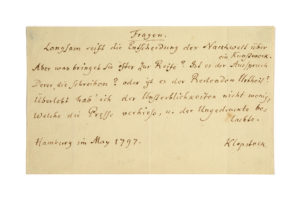 Fragen.
Langsam reift die Entscheidung der Nachwelt über
ein Kunstwerk.
Aber was bringet sie öfter zur Reife? Ist es der Ausspruch
Derer, die schreiben? oder ist es der Redenden Urtheil?
Überlebt hab' ich der Unsterblichkeiten nicht wenig,
Welche die Presse verhiess, u. der Ungedruckte be-
lachte.
Hamburg im May 1797.
Klopstock